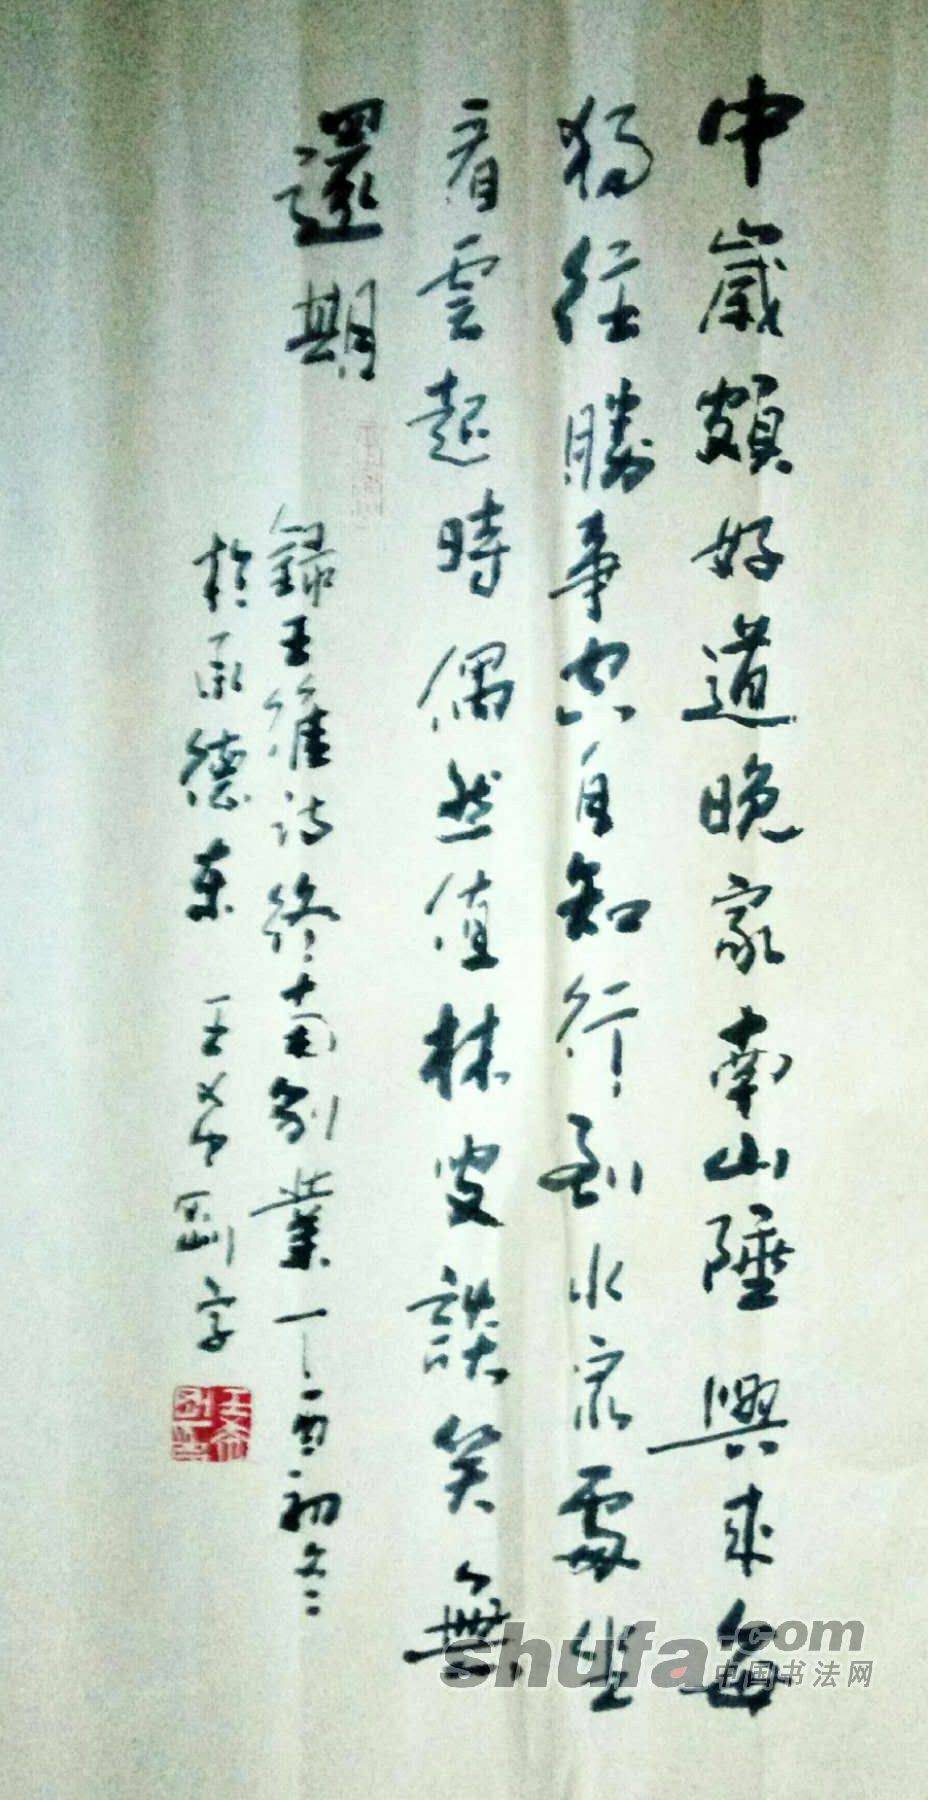 中歲頗好道晚家南山陲興來每
獨往勝事空自知行到水窮處坐
看雲起時偶然值林叟談笑無
還期
錄王維詩終南別業丁酉初冬
於承德東王希剛字
shufa.com
中国书法网